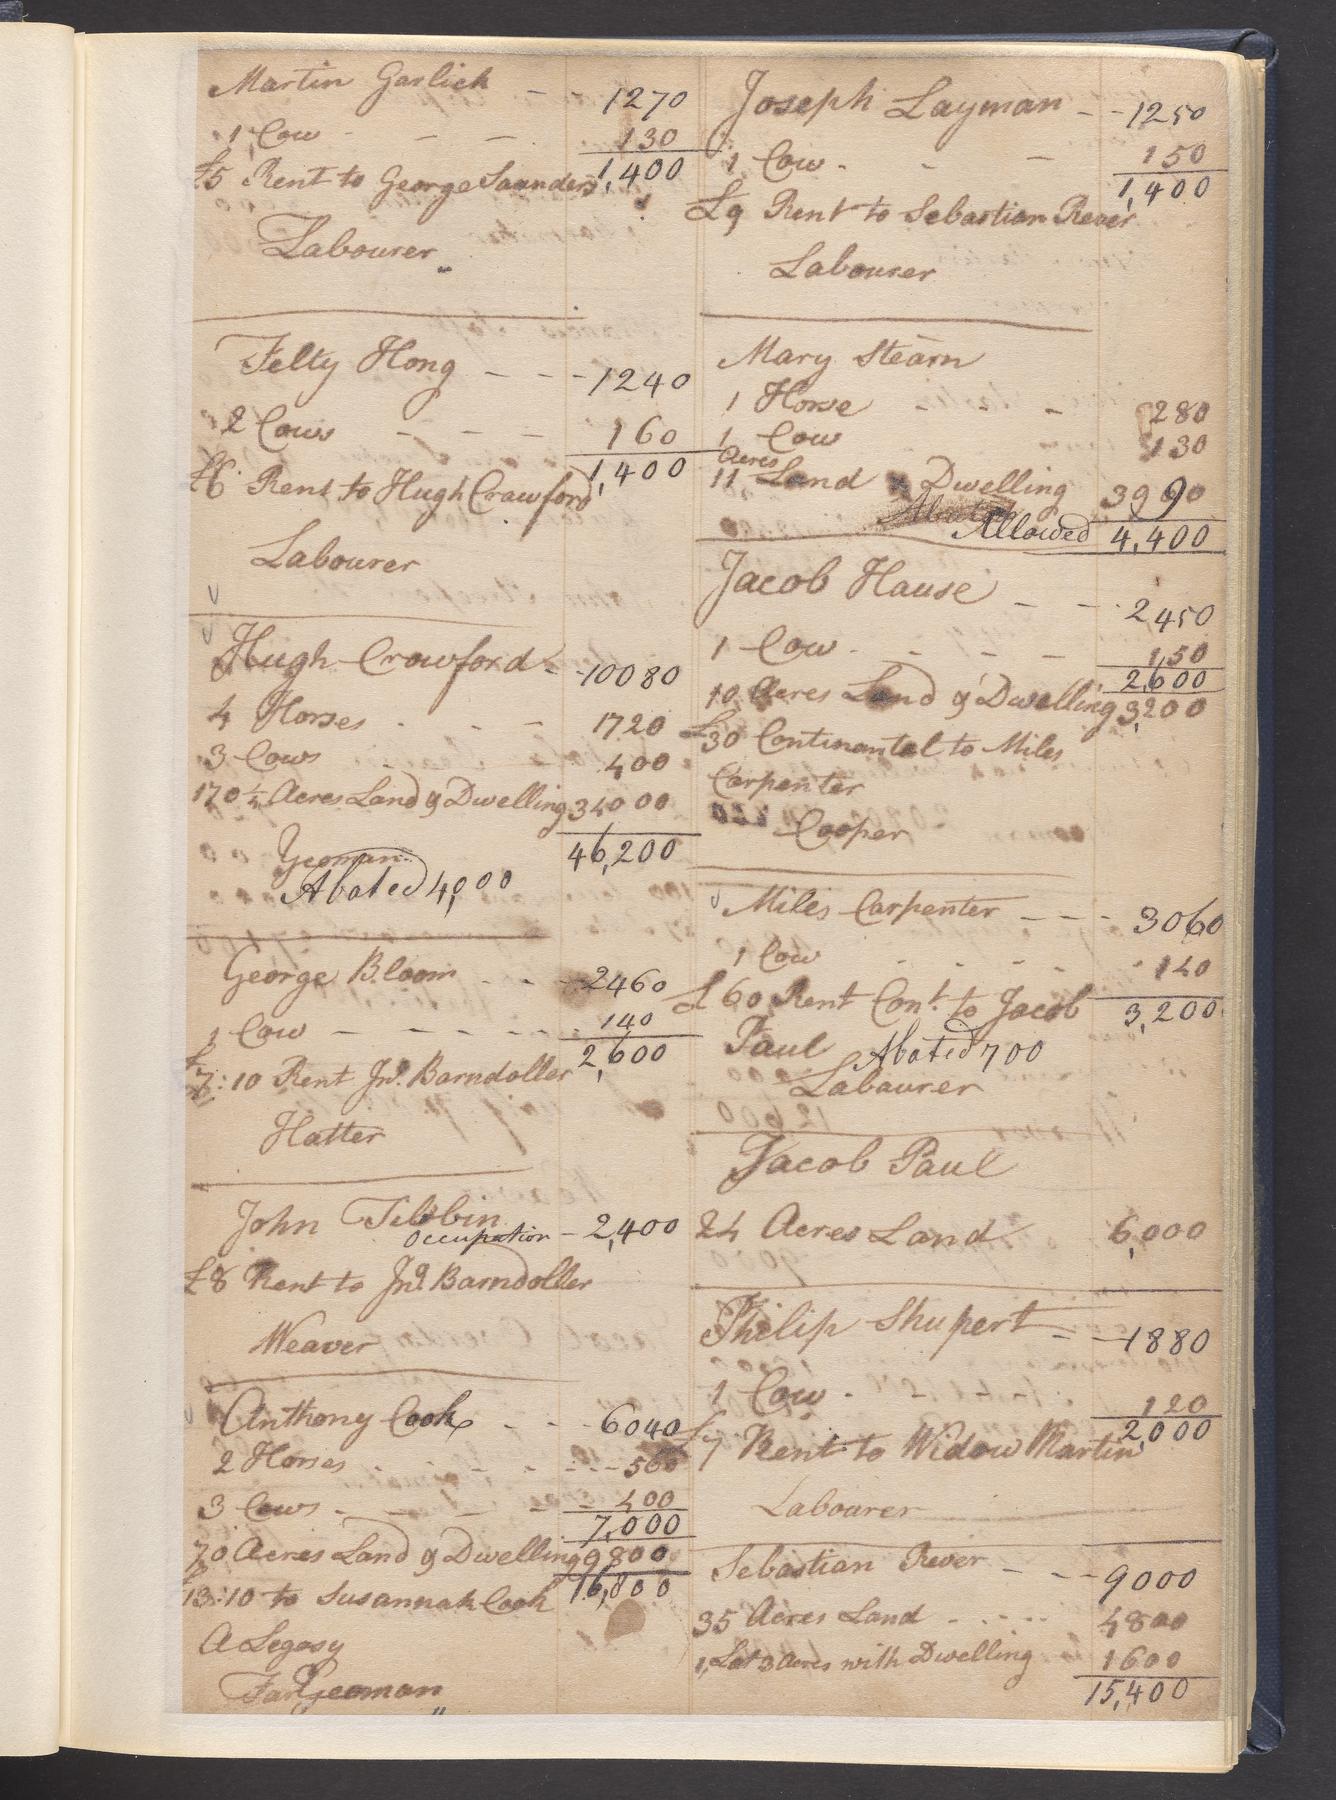 Martin Garlick - - 1270
1 Cow - - - 130
£5 Rent to George Saunders 1,400
Labourer
Felty Hong - - - 1240
2 Cows - - - 160
£6 Rent to Hugh Crawford 1,400
Labourer
Hugh Crawford - - 10080
4 Horses - - - 1720
3 Cows - 400
170 1/4 Acres Land & Dwelling 34000
46,200
Yeoman
Abated 4,000
George Bloom - - - 2460
1 Cow - - - - - - 140
£7:10 Rent Jno. Barndoller 2,600
Hatter
John Tibbin
Occupation - 2,400
£8 Rent to Jno. Barndoller
Weaver
Anthony Cook - - - 6040
2 Horses - - - - - 560
3 Cows - - - - - 400
7,000
70 Acres Land & Dwelling 9800
£13:10 to Susannah Cook 16,800
A Legasy
Yeoman
Joseph Layman - - 1250
1 Cow - - - 150
1,400
£9 Rent to Sebastian Rever
Labourer
Mary Stearn
1 Horse - - - 280
1 Cow 130
Acres
11 Land & Dwelling 3990
Allowed 4,400
Jacob Hause - - 2450
1 Cow - - - - 150
2,600
10 Acres Land & Dwelling 3,200
£30 Continantal to Miles
Carpenter
Cooper
Miles Carpenter - - - 3060
1 Cow - - - - 140
£60 Rent Cont. to Jacob 3,200
Paul Abated 700
Labaurer
Jacob Paul
24 Acres Land 6,000
Philip Shupert - - 1880
1 Cow - - - - 120
2,000
£7 Rent to Widow Martin
Labourer
Sebastian Rever - - - 9000
35 Acres Land - - - - 4800
1 Lot 3 Acres with Dwelling 1600
15,400